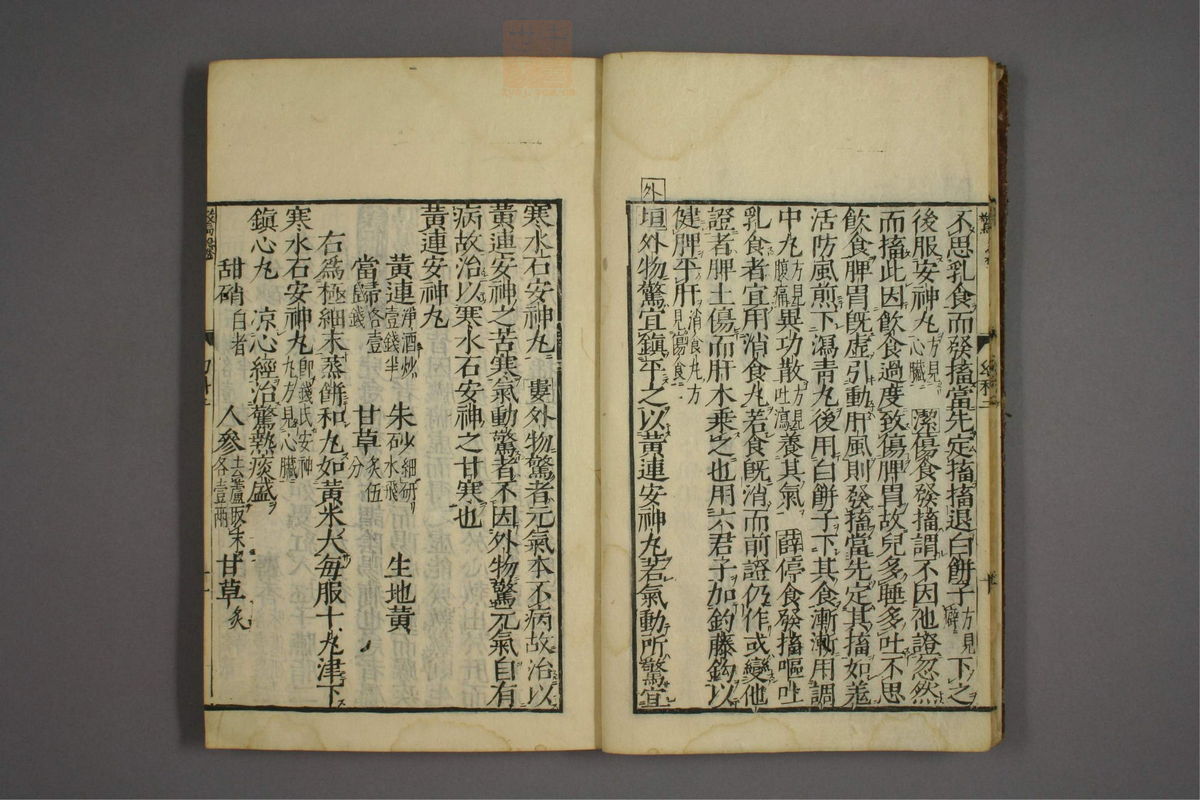 不思乳食而發搐當先定搐搐退白餅子方見癖下之
後服安神丸方見心臟 潔傷食發搐謂不因他證忽然
而搐此因飲食過度致傷脾胃故兒多睡多吐不思
飲食脾胃既虚引動肝風則發搐當先定其搐如羗
活防風煎下瀉青丸後用白餅子下其食漸漸用調
中丸方見腹痛異功散方見吐瀉養其氣 薛停食發搐嘔吐
乳食者宜用消食丸若食既消而前證仍作或變他
證者脾土傷而肝木乗之也用六君子加釣藤鈎以
健脾平肝消食丸方見傷食
外
垣外物驚宜鎮平之以黄連安神丸若氣動所驚宜
寒水石安神丸 婁外物驚者元氣本不病故治以
黄連安神之苦寒氣動驚者不因外物驚元氣自有
病故治以寒水石安神之甘寒也
黄連安神丸
黄連淨酒炒壹錢半 朱砂細研水飛 生地黄
當歸各壹錢 甘草炙伍分
右爲極細末蒸餅和丸如黄米大毎服十丸津下
寒水石安神丸即錢氏安神丸方見心臟
鎮心丸 凉心經治驚熱痰盛
甜硝白者 人參去蘆取末各壹兩 甘草炙